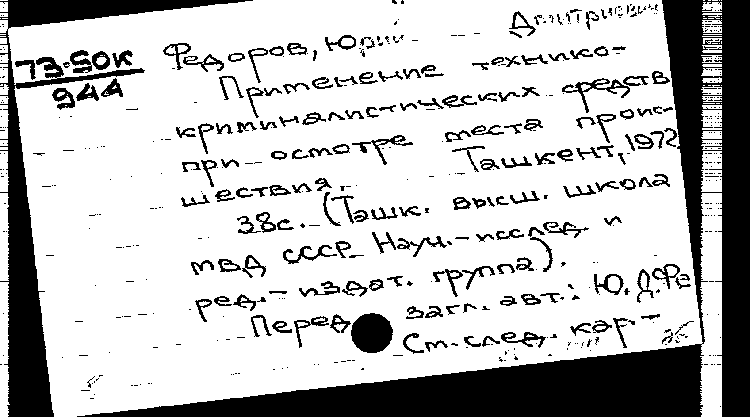 73-50К
944
Федоров, Юрий Дмитриевич
Применение технико-
криминалистических средств
при осмотре места проис-
шествия. Ташкент, 1972
38с. (Ташк. высш. школа
МВД СССР Науч.-исслед. и
ред.-издат. группа).
Перед загл. авт.: Ю.Д.Фе
См. след. кар.-